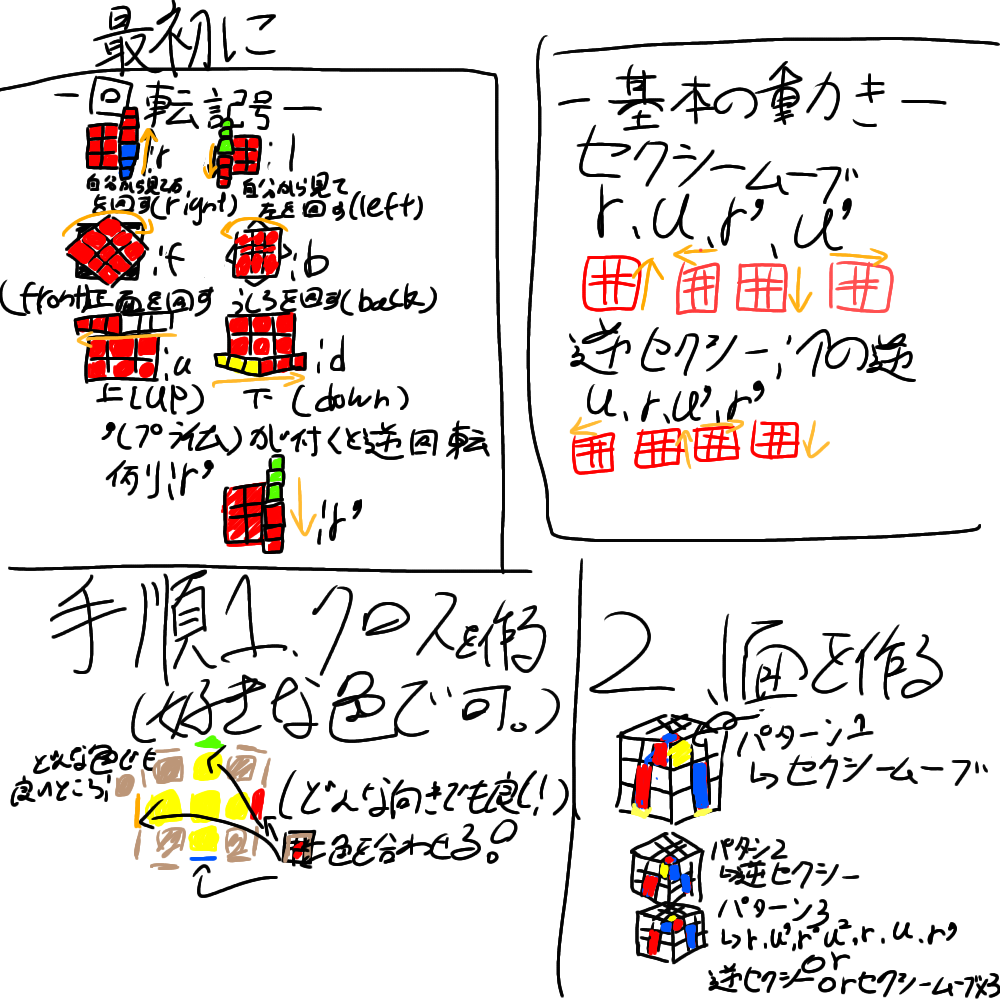 最初に
-回転記号-
:r
:l
自分から見て右
を回す(right)
自分から見て
左を回す(left)
:f
:b
(front)正面を回す
うしろを回す(back)
:u
:d
上(UP)
下(down)
'(プライム)が付くと逆回転
例り:r'
:r'
-基本の動き-
セクシームーブ
r,u,r',u'
逆セクシー:↑の逆
u,r,u',r'
手順1、クロスを作る
(好きな色で可。)
どんな色でも
良いところ:
(どんな向きでも良し!)
色を合わせる。
2、1面を作る
パターン1
↳セクシームーブ
パタン2
↳逆セクシー
パターン3
↳r,u',r'u²,r,u,r'
or
逆セクシーorセクシームーブ×3